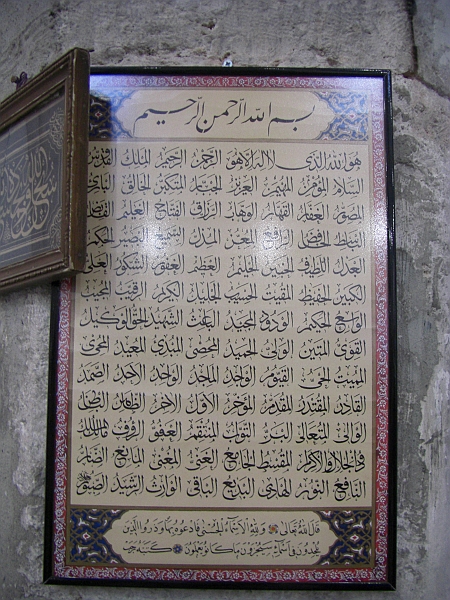 بسم الله الرحمن الرحيم
هو الله الذي لا اله الا هو الرحمن الرحيم الملك القدوس
السلام المؤمن المهيمن العزيز الجبار المتكبر الخالق البارئ
المصور الغفار القهار الوهاب الرزاق الفتاح العليم القابض
الباسط الخافض الرافع المعز المذل السميع البصير الحكم
العدل اللطيف الخبير الحليم العظيم الغفور الشكور العلي
الكبير الحفيظ المقيت الحسيب الجليل الكريم الرقيب المجيب
الواسع الحكيم الودود المجيد الباعث الشهيد الحق الوكيل
القوي المتين الولي الحميد المحصي المبدئ المعيد المحيي
المميت الحي القيوم الواجد الماجد الواحد الاحد الصمد
القادر المقتدر المقدم المؤخر الاول الاخر الظاهر الباطن
الوالي المتعالي البر التواب المنتقم العفو الرؤف مالك الملك
ذو الجلال والاكرام المقسط الجامع الغني المغني المانع الضار
النافع النور الهادي البديع الباقي الوارث الرشيد الصبور
قال الله تعالى ولله الاسماء الحسنى فادعوه بها وذروا الذين
يلحدون في اسمائه سيجزون ما كانوا يعملون كتبه